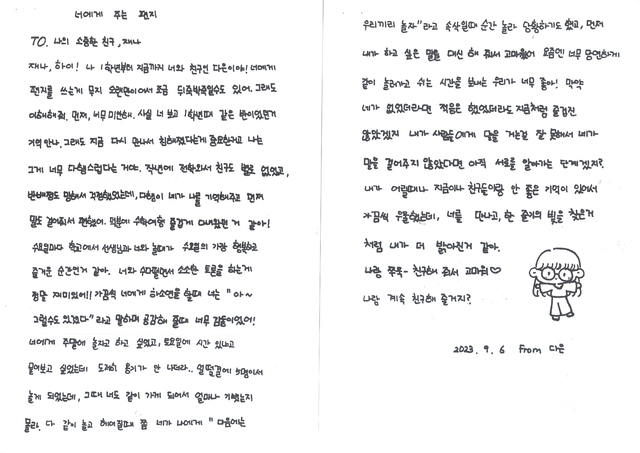 너에게 주는 편지
TO. 나의 소중한 친구, 재나
재나, 하이! 나 1학년부터 지금까지 너와 친구인 다은이야! 너에게
편지를 쓰는게 무지 오랜만이어서 조금 뒤죽박죽일수도 있어. 그래도
이해해줘. 먼저, 너무 미안해. 사실 너 보고 1학년때 같은 반이었던거
기억안나. 그래도 지금 다시 만나서 친해졌다는게 중요하고 나는
그게 너무 다행스럽다는 거야. 작년에 전학와서 친구도 별로 없었고,
반배정도 망해서 걱정했었는데, 다행이 네가 나를 기억해주고 먼저
말도 걸어줘서 편했어. 덕분에 수학여행 즐겁게 다녀왔던 거 같아!
수요일마다 학교에서 선생님과 너와 놀때가 수요일의 가장 행복하고
즐거운 순간인거 같아. 너와 수다떨면서 소소한 토론을 하는게
정말 재미있어!! 가끔씩 너에게 하소연을 할때 너는 "아~
그럴수도 있겠다"라고 말하며 공감해 줄때 너무 감동이었어!
너에게 주말에 놀자고 하고 싶었고, 토요일에 시간 있냐고
물어보고 싶었는데 도저히 용기가 안 나더라.. 얼떨결에 5명이서
놀게 되었는데, 그때 너도 같이 가게 되어서 얼마나 기뻤는지
몰라. 다 같이 놀고 헤어질때 쯤 네가 나에게 "다음에는
우리끼리 놀자"라고 속삭일때 순간 놀라 당황하기도 했고, 먼저
내가 하고 싶은 말을 대신 해 줘서 고마웠어 요즘엔 너무 당연하게
같이 놀러가고 쉬는 시간을 보내는 우리가 너무 좋아! 만약
네가 없었더라면 적응은 했었더라도 지금처럼 즐겁진
않았겠지 내가 사람들에게 말을 거는걸 잘 못해서 네가
말을 걸어주지 않았다면 아직 서로를 알아가는 단계겠지?
내가 어릴때나 지금이나 친구들이랑 안 좋은 기억이 있어서
가끔씩 우울했는데, 너를 만나고, 한 줄기의 빛을 찾은거
처럼 내가 더 밝아진거 같아.
나랑 쭈욱- 친구해 줘서 고마워♡
나랑 계속 친구해 줄거지?
2023. 9. 6 From 다은